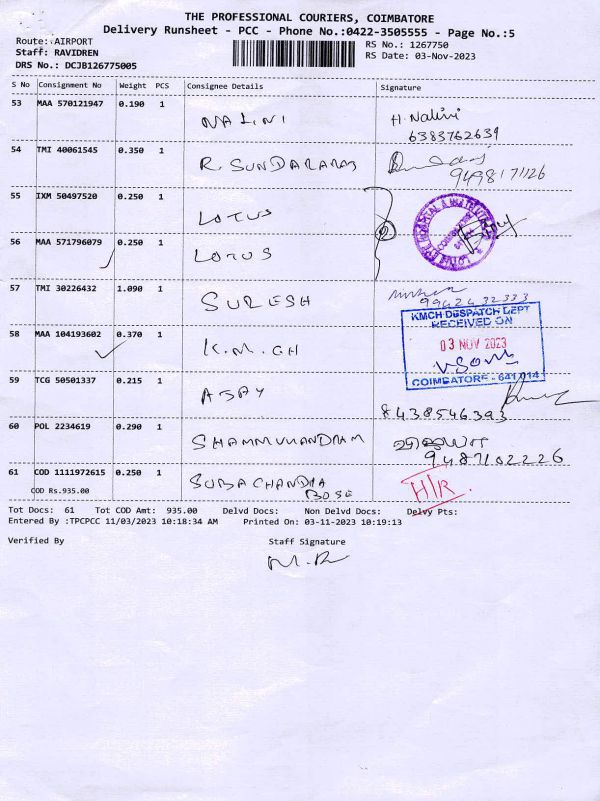 THE PROFESSIONAL COURIERS, COIMBATORE
Delivery Runsheet - PCC - Phone No.:0422-3505555 - Page No.:5
Route: AIRPORT
Staff: RAVIDREN
DRS No.: DCJB126775005
RS No.: 1267750
RS Date: 03-Nov-2023
S No Consignment No Weight PCS Consignee Details Signature
53 MAA 570121947 0.190 1 NALINI H. Nalini
6383762639
54 TMI 40061545 0.350 1 R. SUNDARARAJ
9498171126
55 IXM 50497520 0.250 1 LOTUS
56 MAA 571796079 0.250 1 LOTUS
57 TMI 30226432 1.090 1 SURESH
9942432333
58 MAA 104193602 0.370 1 K.M.CH
KMCH DESPATCH DEPT
RECEIVED ON
03 NOV 2023
COIMBATORE - 641 014
59 TCG 50501337 0.215 1 AJAY
8438546393
60 POL 2234619 0.290 1
9487102226
61 COD 1111972615 0.250 1 SUBACHANDRA
BOSE
H/R.
COD Rs.935.00
Tot Docs: 61 Tot COD Amt: 935.00 Delvd Docs: Non Delvd Docs: Delvy Pts:
Entered By :TPCPCC 11/03/2023 10:18:34 AM Printed On: 03-11-2023 10:19:13
Verified By Staff Signature